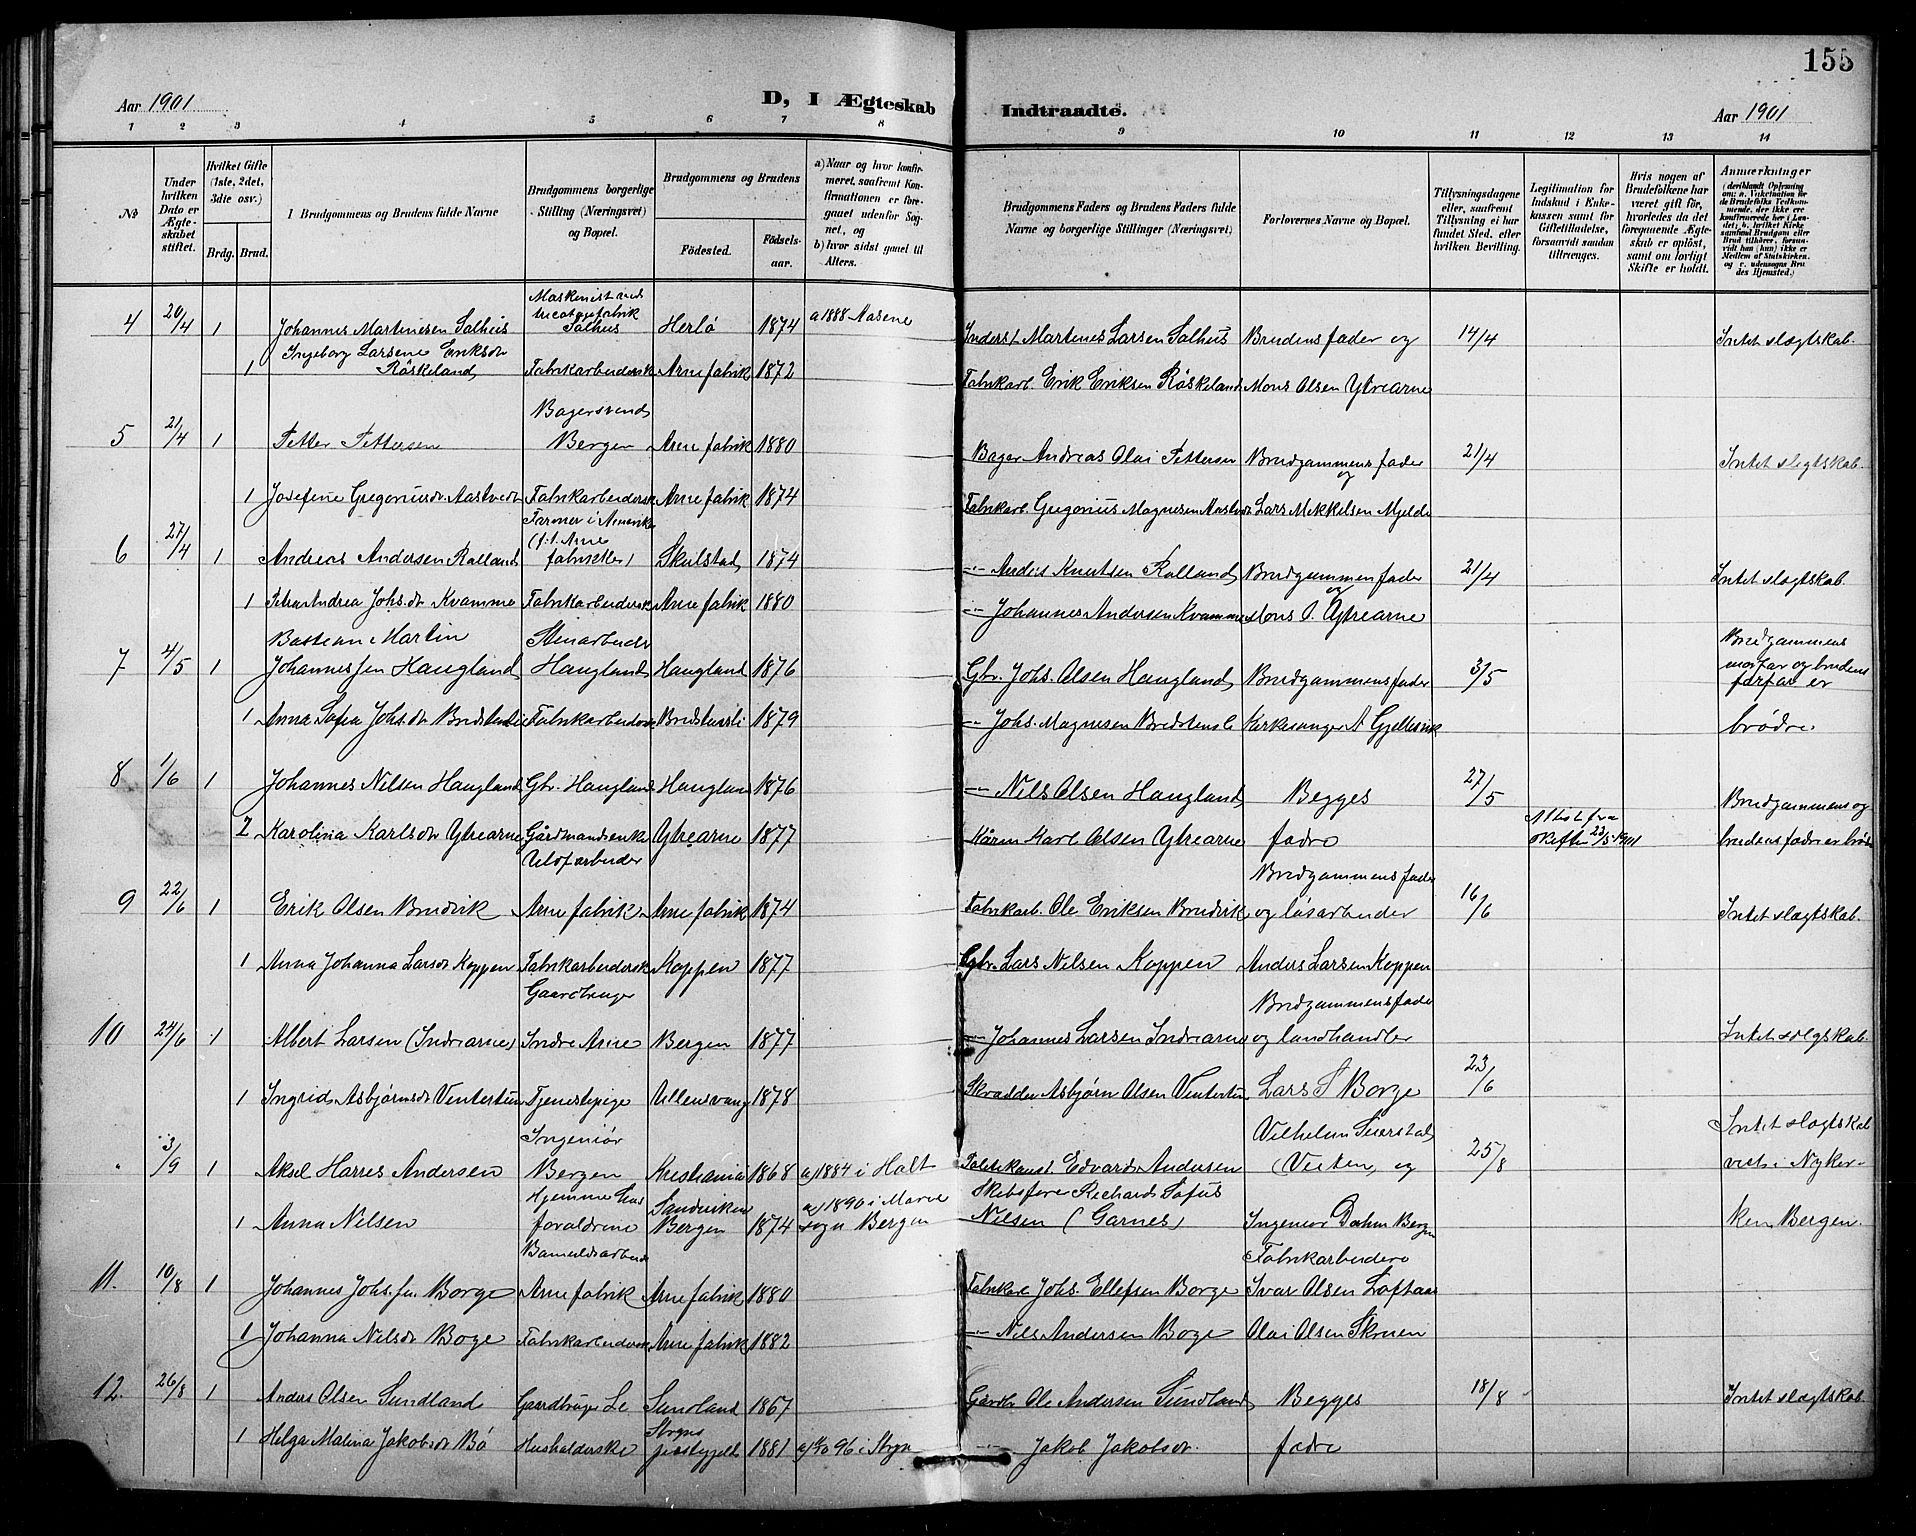 155
Aar 1901
D, I Ægteskab
Indtraadte.
Aar 1901
1 2 3 4 5 6 7 8 9 10 11 12 13 14
No
Under hvilken Dato er Ægteskabet stiftet.
Hvilket Gifte (1ste, 2det, 3die osv.)
Brdg. Brud.
Brudgommens og Brudens fulde Navne
Brudgommens borgerlige Stilling (Næringsvei) og Bopæl.
Brudgommens og Brudens
Födested.
Födselsaar.
a) Naar og hvor konfirmeret, saafremt Konfirmationen er foregaaet udenfor Sognet, og
b) hvor sidst gaaet til Alters.
Brudgommens Faders og Brudens Faders fulde Navne og borgerlige Stillinger (Næringsvei)
Forlovernes Navne og Bopæl.
Tillysningsdagene eller, saafremt Tillysning ei har fundet Sted, efter hvilken Bevilling.
Legitimation for Indskud i Enkekassen samt for Giftetilladelse, forsaavidt saadan tiltrænges.
Hvis nogen af Brudefolkene har været gift før, hvorledes da det foregaaende Ægteskab er oplöst, samt om lovligt Skifte er holdt.
Anmærkninger
4 20/4 1 Johannes Martinesen Salhus Maskinist ved tricotagefabrik Salhus Herlö 1874 a 1888 Aasene Martenes Larsen Salhus Brudens fader og 14/4 Intet slægtskab.
1 Ingeborg Larsene Eriksdr Röskeland Fabrikarbeidersk Arne fabrik 1872 Fabrikarb. Erik Eriksen Röskeland Mons Olsen Ytrearne
5 21/4 1 Petter Pettersen Bagersvend Bergen Arne fabrik 1880 Bager Andreas Olai Pettersen Brudgammens fader og 21/4 Intet slegtskab.
1 Josefine Gregoriusdr. Aastvedt Fabrikarbeidersk Arne fabrik 1874 Fabrikarb. Gregorius Magnesen Aastvedt Lars Mikkelsen Mjelde
6 27/4 1 Andreas Andersen Rolland Farmer i Amerika (f.t. Arne fabrikker) Skulstad 1874 -"- Anders Knutsen Rolland Brudgammen fader og 21/4 Intet slægtskab.
1 Petra Andrea Johs.dr Kvamme Fabrikarbeidersk Arne fabrik 1880 -"- Johannes Andersen Kvamme Mons O. Ytrearne
7 4/5 1 Bastian Martin Johannessen Haugland Stenarbeider Haugland Haugland 1876 Gbr. Johs. Olsen Haugland Brudgammens fader 3/5 Brudgammens morfar og brudens farfar er brödre.
1 Anna Sofia Johs.dr Fabrikarbeiderske 1879 -"- Johs. Magnesen Kirkesanger A Gjellesvik
8 1/6 1 Johannes Nilsen Haugland Gbr. Haugland Haugland 1876 -"- Nils Olsen Haugland Begges 27/5 Brudgammens og
2 Karolina Karlsdr Ytrearne Gårdmandsenke Ytrearne 1877 Karl Olsen Ytrearne fadre Attest fra skiften 23/5 1901 brudens fadre er brödre
9 22/6 1 Erik Olsen Brudvik Uldfarbeider Arne fabrik Arne fabrik 1874 Fabrikarb. Ole Eriksen Brudvik Brudgammens fader og lösarbeider 16/6 Intet slægtskab.
1 Anna Johanna Larsdr Koppen Fabrikarbeidersk Koppen 1877 Gbr. Lars Nilsen Koppen Anders Larsen Koppen
10 24/6 1 Albert Larsen (Indrearne) Gaardbruger Indre Arne Bergen 1877 -"- Johannes Larsen Indrearne Brudgammens fader og landhandler 23/6 Intet slegtskab.
1 Ingrid Asbjörnsdr Ventertun Tjenestepige Ullensvang 1878 Skradder Asbjørn Olsen Ventertun Lars S Borge
" 3/9 1 Aksel Harres Andersen Ingeniör Bergen Kristiania 1868 a) 1884 i Holt Edvard Andersen Vilhelm (Veiten) og 25/8 Intet slægtskab viet i Nykirken Bergen.
1 Anna Nilsen Hjemme hos foraldrene Sandviken Bergen 1874 a) 1890 i Marie sogn Bergen Skibsförer Richard Sofus Nilsen (Garnes) Ingeniør Dahm Bergen
11. 10/8 1 Johannes Johs.sen Borge Bomuldsarbeider Arne fabrik Arne fabrik 1880 Fabrikarb Johs. Ellefsen Borge Fabrikarbeidere Ivar Olsen Loftaas
1 Johanna Nilsdr Boge Fabrikarbeiderske Arne fabrik 1882 -"- Nils Andersen Boge Olai Olsen Skruen
12. 26/8 1 Anders Olsen Sundland Gaardbruger Le Sundland 1867 Gårdbr Ole Andersen Sundland Begges 18/8 Intet slægtskab.
1 Helga Malina Jakobsdr Bö Husholderske Stryns præstegjeld 1881 96 i Stryn -"- Jakob Jakobsen fadre